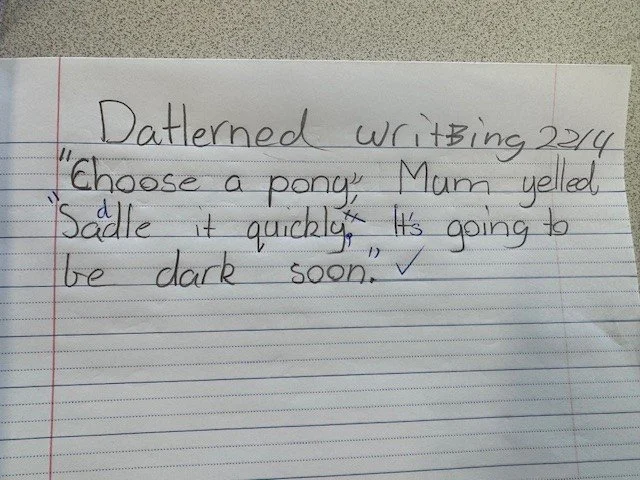 Datlerned writBing 22/4
"Choose a pony," Mum yelled
"Sadle it quickly. It's going to
be dark soon."